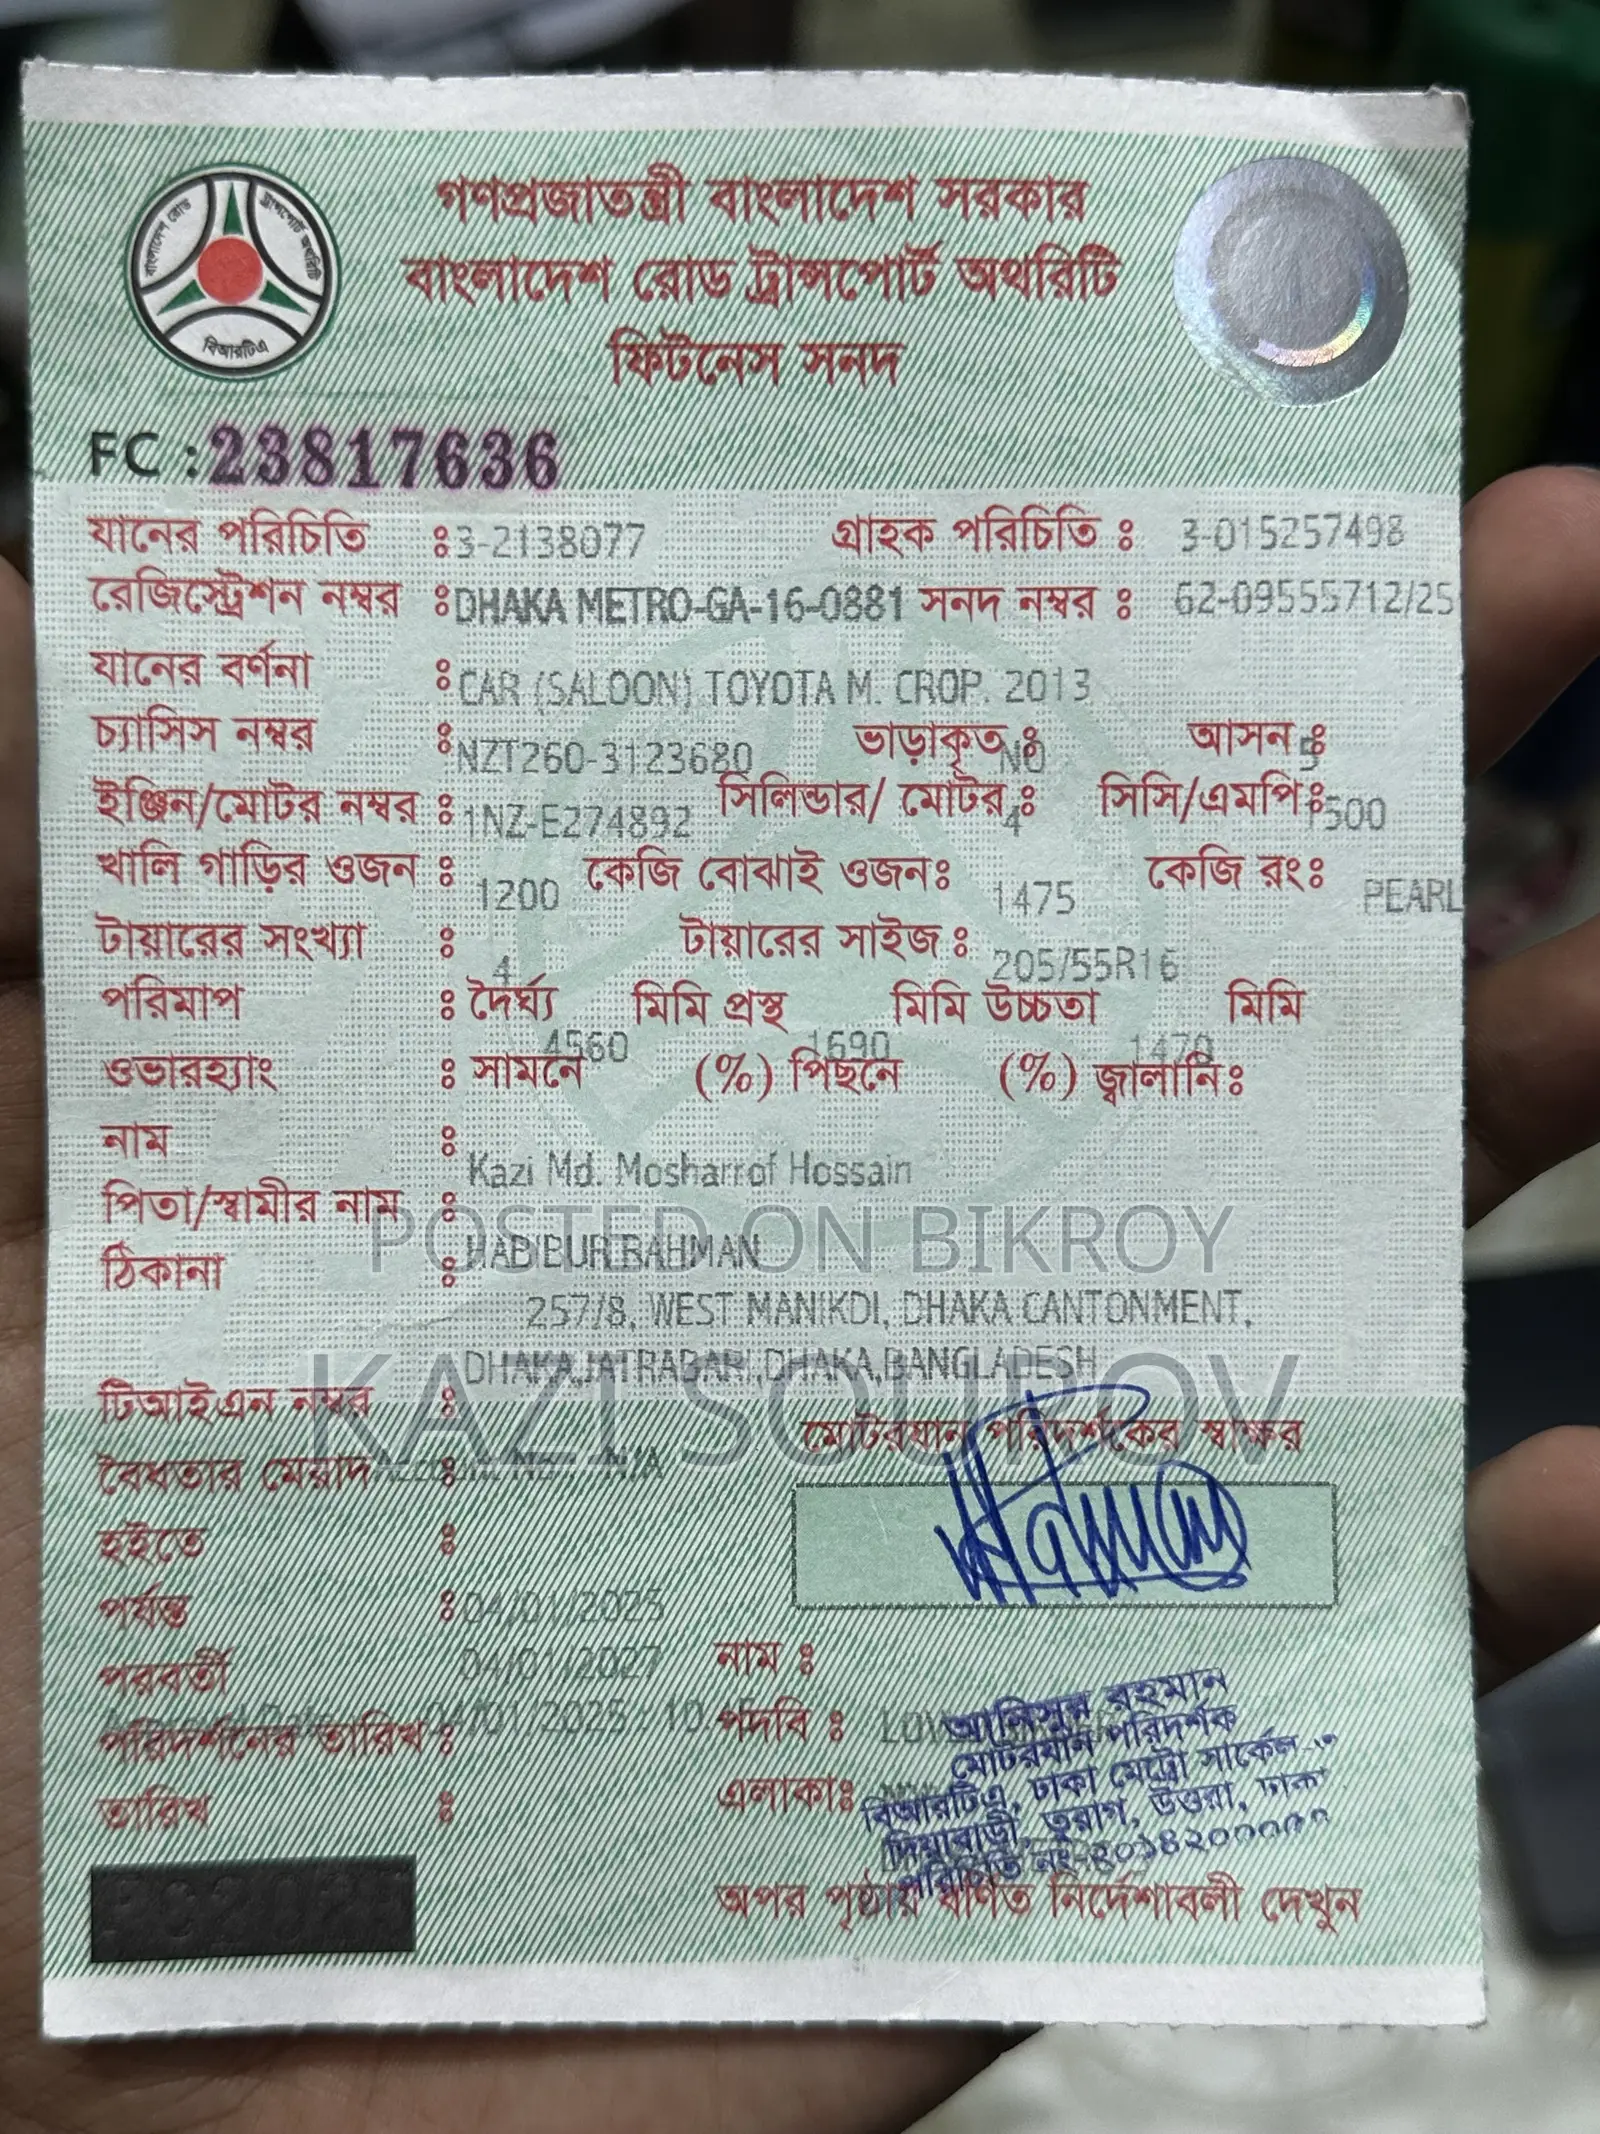 গণপ্রজাতন্ত্রী বাংলাদেশ সরকার
বাংলাদেশ রোড ট্রান্সপোর্ট অথরিটি
ফিটনেস সনদ
বাংলাদেশ রোড ট্রান্সপোর্ট অথরিটি
বিআরটিএ
FC : 23817636
যানের পরিচিতি : 3-2138077 গ্রাহক পরিচিতি : 3-015257498
রেজিস্ট্রেশন নম্বর : DHAKA METRO-GA-16-0881 সনদ নম্বর : 62-09555712/25
যানের বর্ণনা : CAR (SALOON) TOYOTA M. CROP. 2013
চ্যাসিস নম্বর : NZT260-3123680 ভাড়াকৃত : NO আসন : 5
ইঞ্জিন/মোটর নম্বর : 1NZ-E274892 সিলিন্ডার/ মোটর : 4 সিসি/এমপি : 1500
খালি গাড়ির ওজন : 1200 কেজি বোঝাই ওজন : 1475 কেজি রং : PEARL
টায়ারের সংখ্যা : 4 টায়ারের সাইজ : 205/55R16
পরিমাপ : দৈর্ঘ্য 4560 মিমি প্রস্থ 1690 মিমি উচ্চতা 1470 মিমি
ওভারহ্যাং : সামনে (%) পিছনে (%) জ্বালানি :
নাম : Kazi Md. Mosharrof Hossain
পিতা/স্বামীর নাম : HABIBUR RAHMAN
ঠিকানা : 257/8, WEST MANIKDI, DHAKA CANTONMENT,
DHAKA,JATRABARI,DHAKA,BANGLADESH
POSTED ON BIKROY
KAZI SOUROV
টিআইএন নম্বর : N/A
মোটরযান পরিদর্শকের স্বাক্ষর
বৈধতার মেয়াদ :
হইতে : 04/01/2025
পর্যন্ত : 04/01/2027
পরবর্তী
পরিদর্শনের তারিখ :
তারিখ :
নাম :
পদবি :
এলাকা :
আনিসুর রহমান
মোটরযান পরিদর্শক
বিআরটিএ, ঢাকা মেট্রো সার্কেল
দিয়াবাড়ী, তুরাগ, উত্তরা, ঢাকা
পরিচিতি নং
অপর পৃষ্ঠায় বর্ণিত নির্দেশাবলী দেখুন